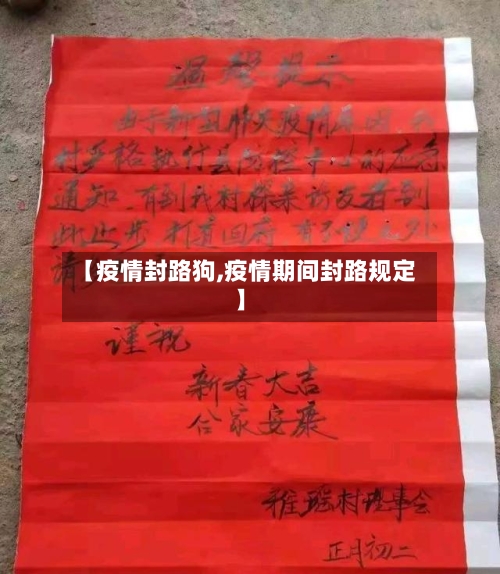 温馨提示
由于新型肺炎疫情原因,我
村严格执行县防控中心的应急
通知、有到我村探亲访友者到
此止步
【疫情封路狗,疫情期间封路规定
】
谨祝
新春大吉
合家安康
雅瑶村理事会
正月初二